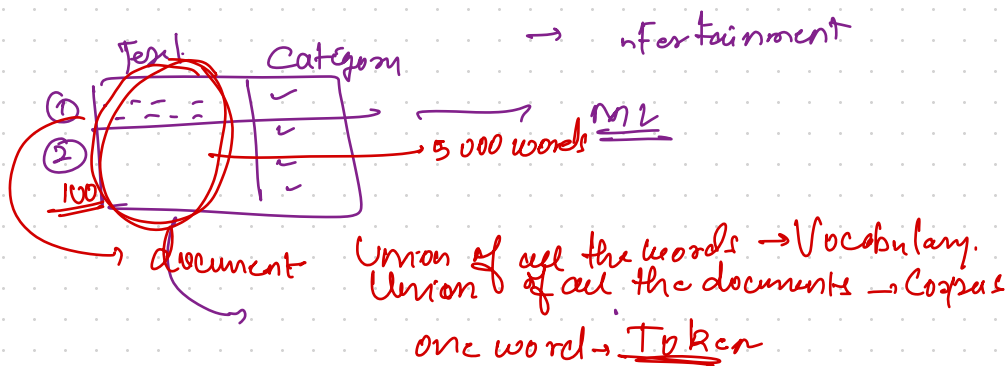 → nfertainment
Text Category
①
② → 5000 words ML
100
document
Union of all the words → Vocabulary.
Union of all the documents → Corpus
one word → Token